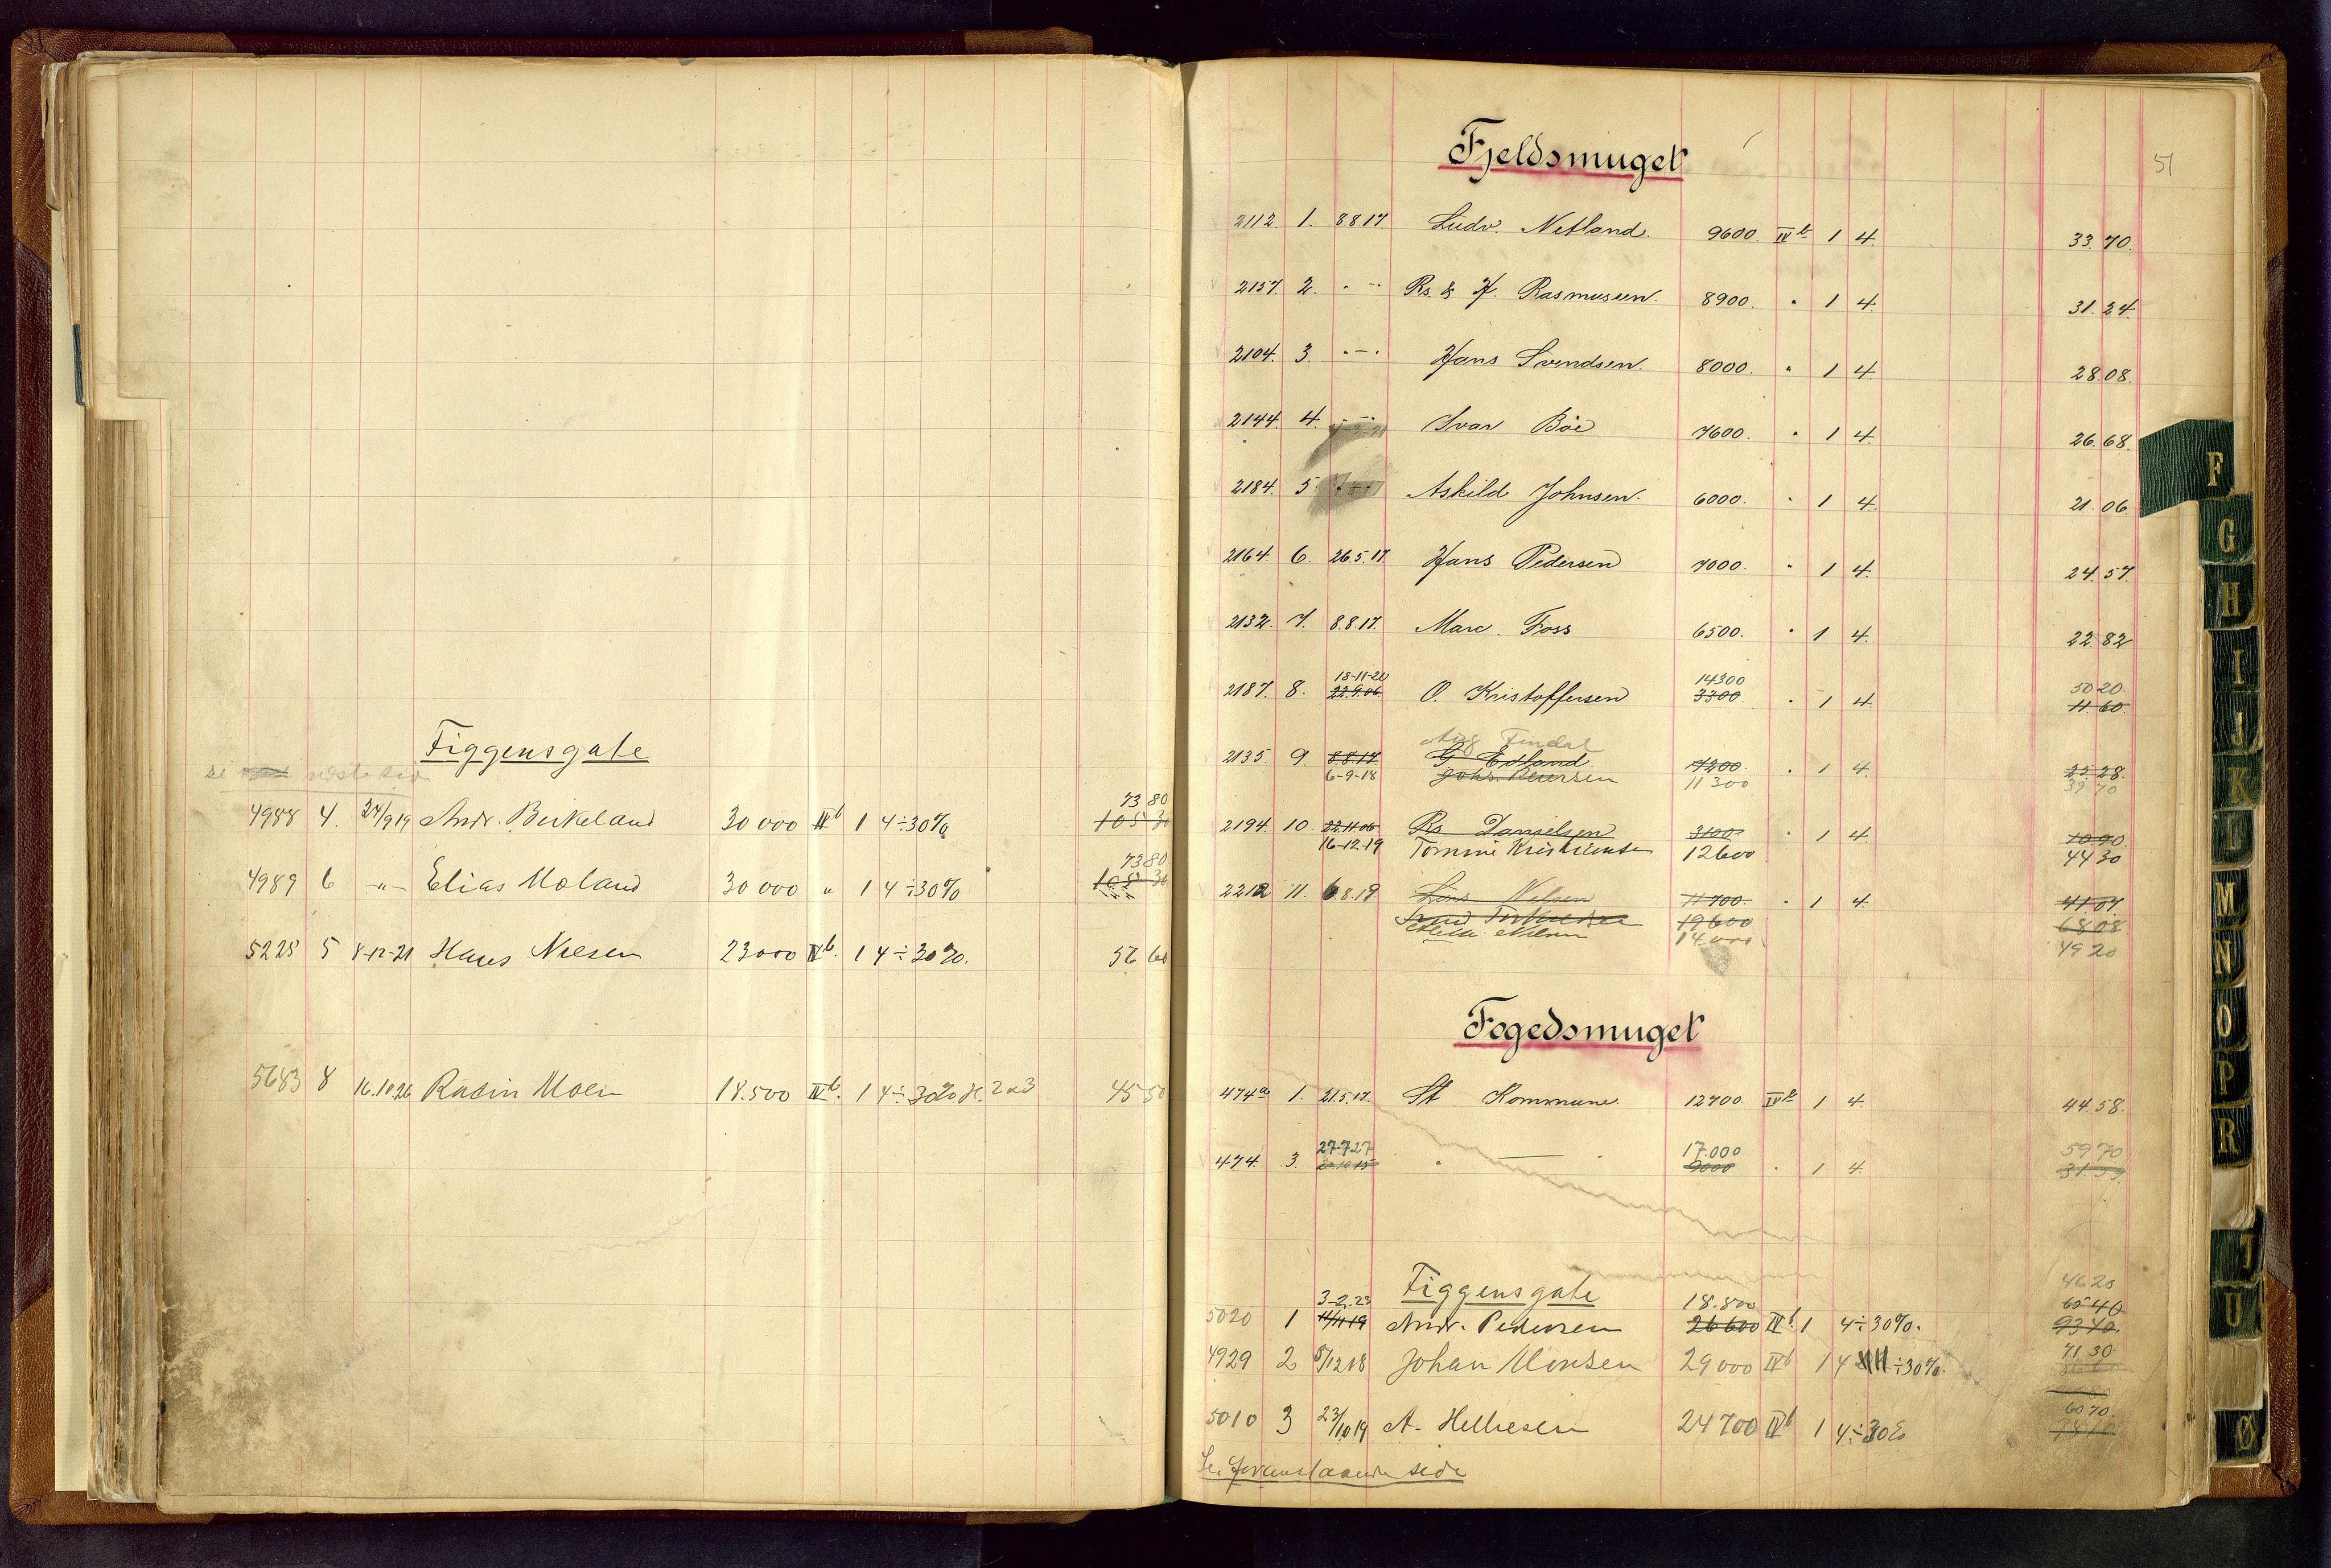 Figgensgate
se næste side
4988 4. 24/9 19 Andr. Birkeland 30 000 IVb 1 4 ÷ 30% 73 80
105 30
4989 6 -"- Elias Moland 30 000 " 1 4 ÷ 30% 73 80
105 30
5225 5 8-12-21 Hans Nilsen 23000 IVb. 1 4 ÷ 30%. 56 60
5683 8 16.10.26 Rasin Moen 18.500 IVb. 1 4 ÷ 30% 45 50
51
Fjeldsmuget
2112 1. 8.8.17 Ludv. Netland. 9600. IVb 1 4. 33.70.
2157. 2. " — " Rs. & H. Rasmussen. 8900. " 1 4. 31.24.
2104. 3. " — " Hans Svendsen. 8000. " 1 4. 28.08.
2144. 4. " — " Ivar Böe 7600. " 1 4. 26.68.
2184. 5. Askild Johnsen. 6000. " 1 4. 21.06.
2164. 6. 26.5.17 Hans Pedersen 7000. " 1 4. 24.57.
2132. 7. 8.8.17. Marc. Foss 6500. " 1 4. 22.82
18-11-20 14300 50 20
2187. 8. 22.9.06 O. Kristoffersen 3300. " 1 4. 11.60.
Aug Tendal
2135. 9. 8.8.17. G Edland. 7200. " 1 4. 25.28.
6-9-18 Johs. Iversen 11300 39 70
2194. 10. 22.11.06 Rs. Danielsen 3100 " 1 4. 10.90.
16-12-19 Tomine Kristiansen 12600 44 30
2212 11. 6.8.19. Lars Nelsen 11700. " 1 4. 41.07.
19600 68 08
14000 49 20
Fogedsmuget
474a 1. 21.5.17. St Kommune 12700. IVb 1 4. 44.58.
27-7 27 17.000 59 70
474. 3. " — " 9000 " 1 4. 31.59
Figgensgate
3-2.23 18.800 46 20
65 40
5020 1 11/11 19 Andr. Pedersen 26600 IVb. 1 4 ÷ 30%. 93 40.
4929 2 5/12 18 Johan Monsen 29000 IVb 1 4 ÷ 30%. 71 30
5010 3 23/10 19 A. Helliesen 24700 IVb 1 4 ÷ 30% 60 70.
Se. foranstaaende side
F
G
H
I
J
K
L
M
N
O
P
R
T
U
Ø